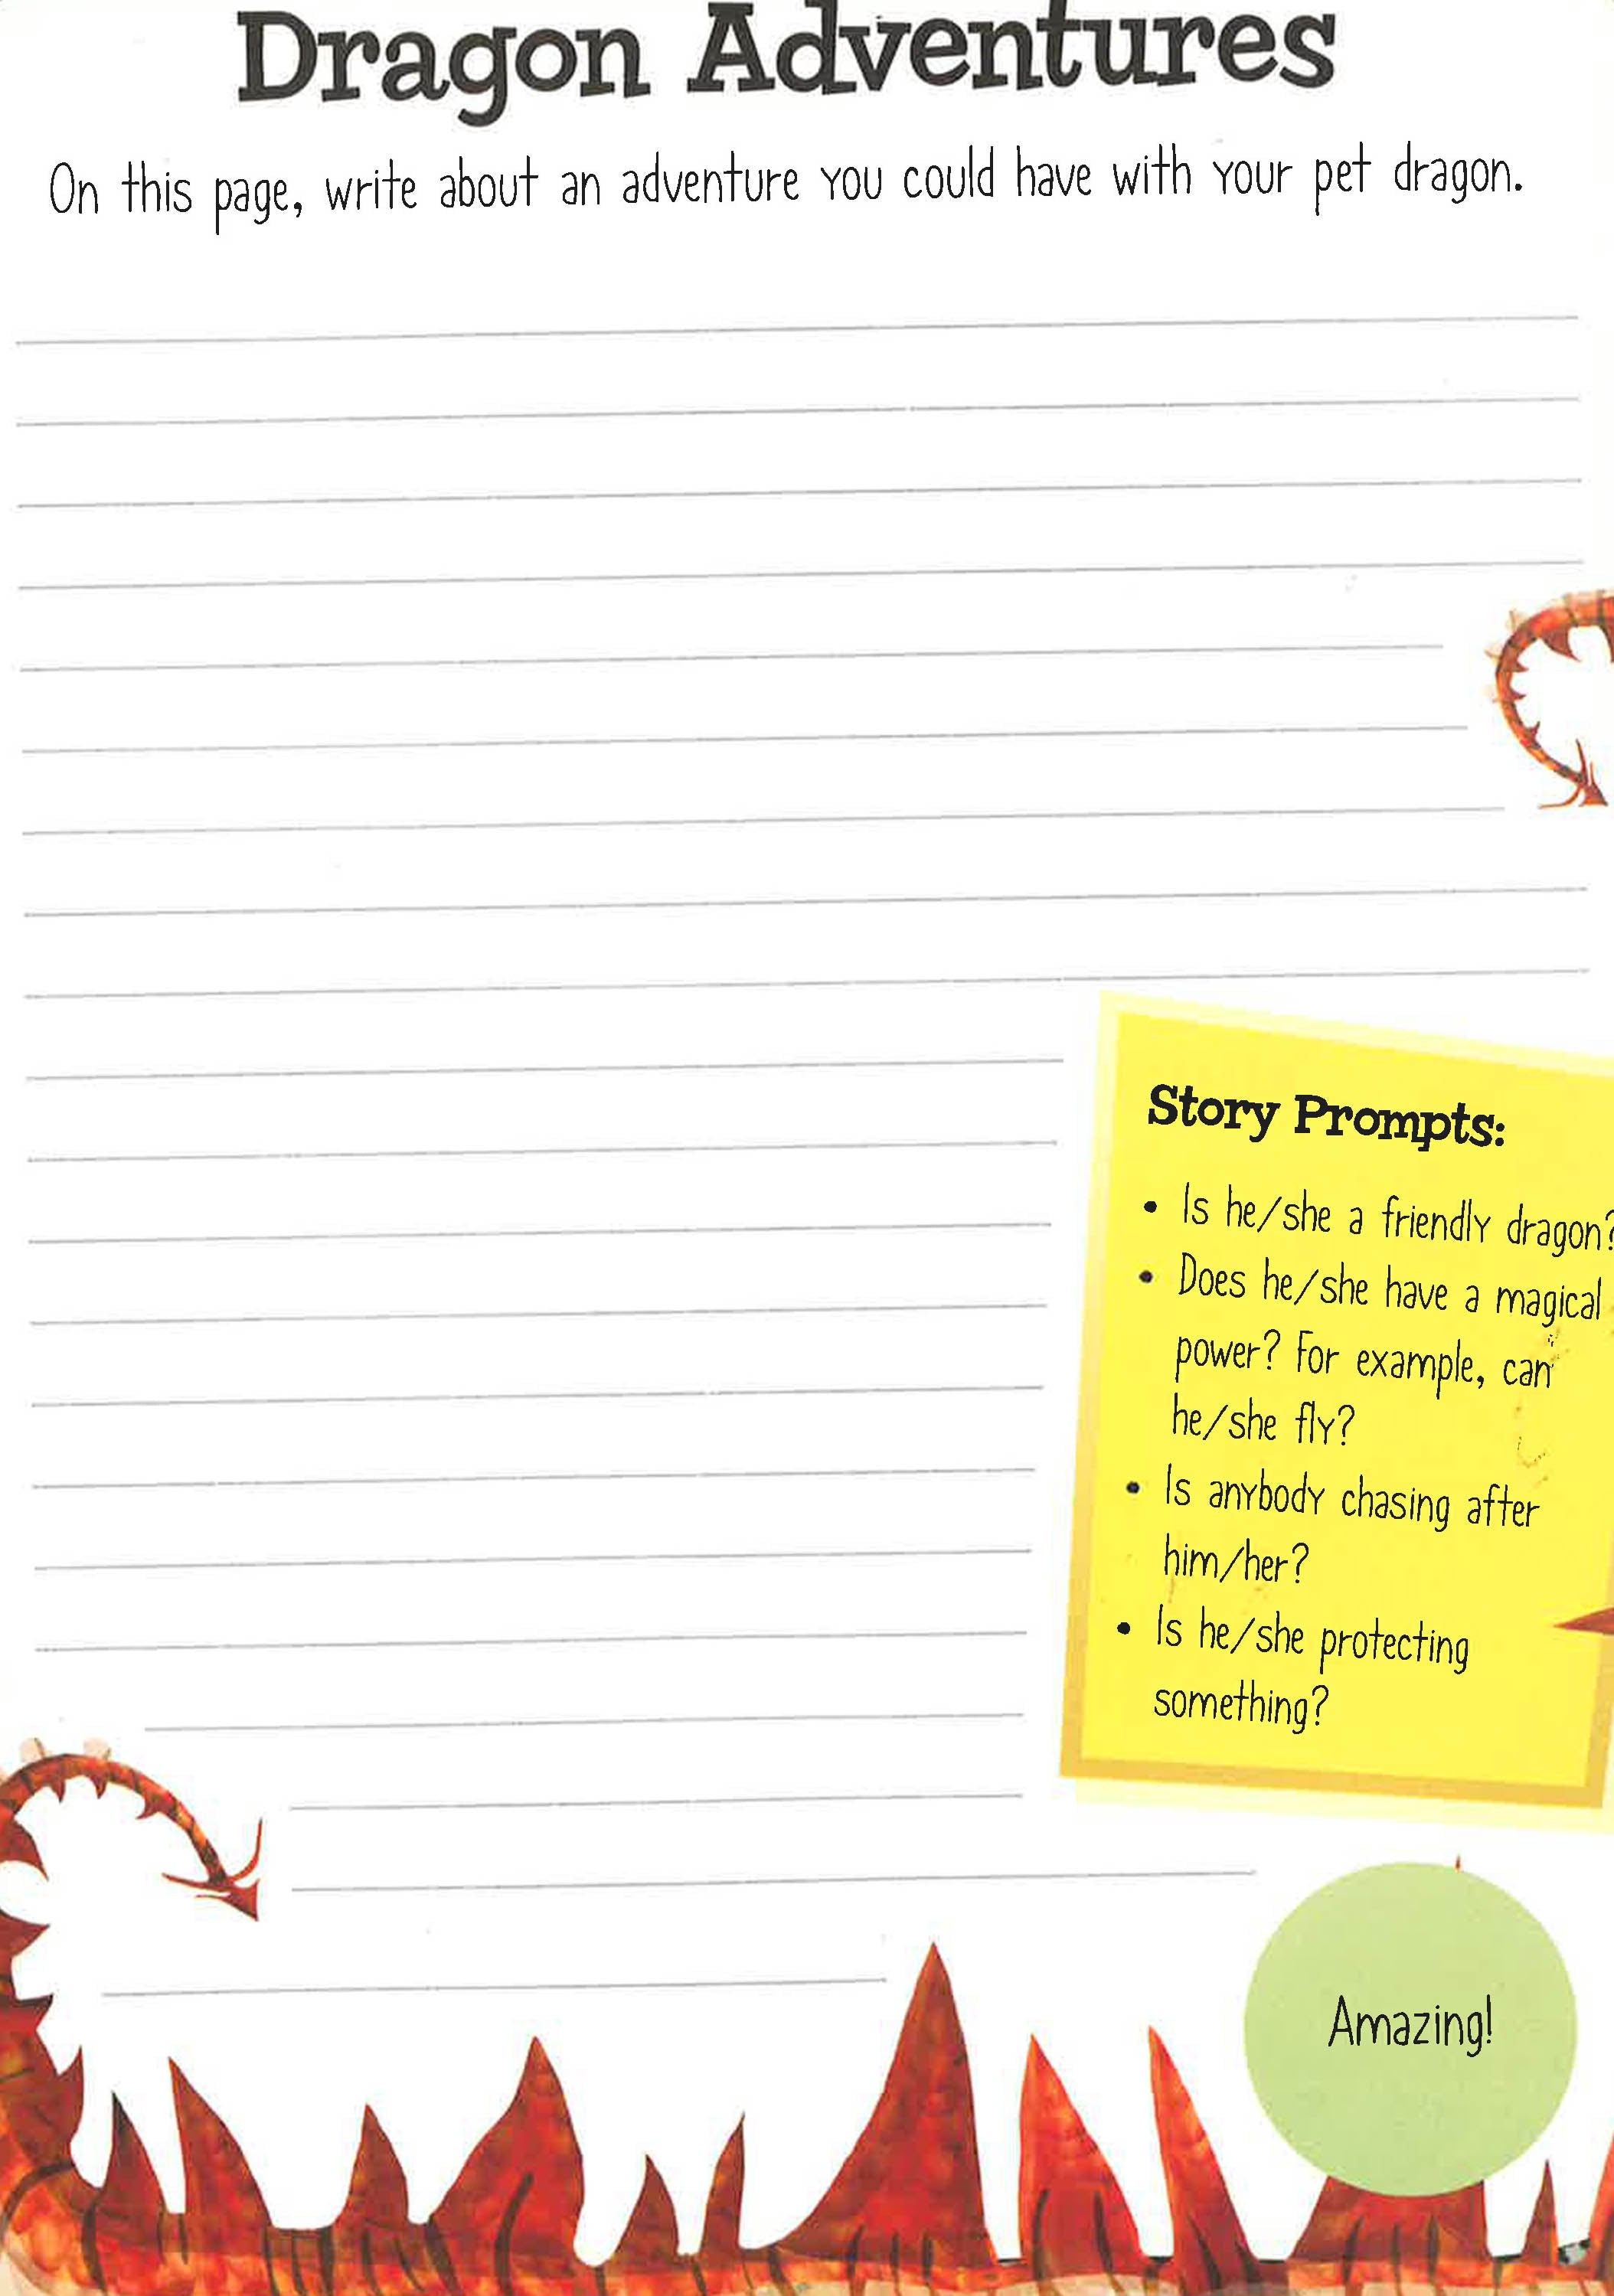 Dragon Adventures
On this page, write about an adventure you could have with your pet dragon.
Story Prompts:
• Is he/she a friendly dragon?
• Does he/she have a magical
power? For example, can
he/she fly?
• Is anybody chasing after
him/her?
• Is he/she protecting
something?
Amazing!